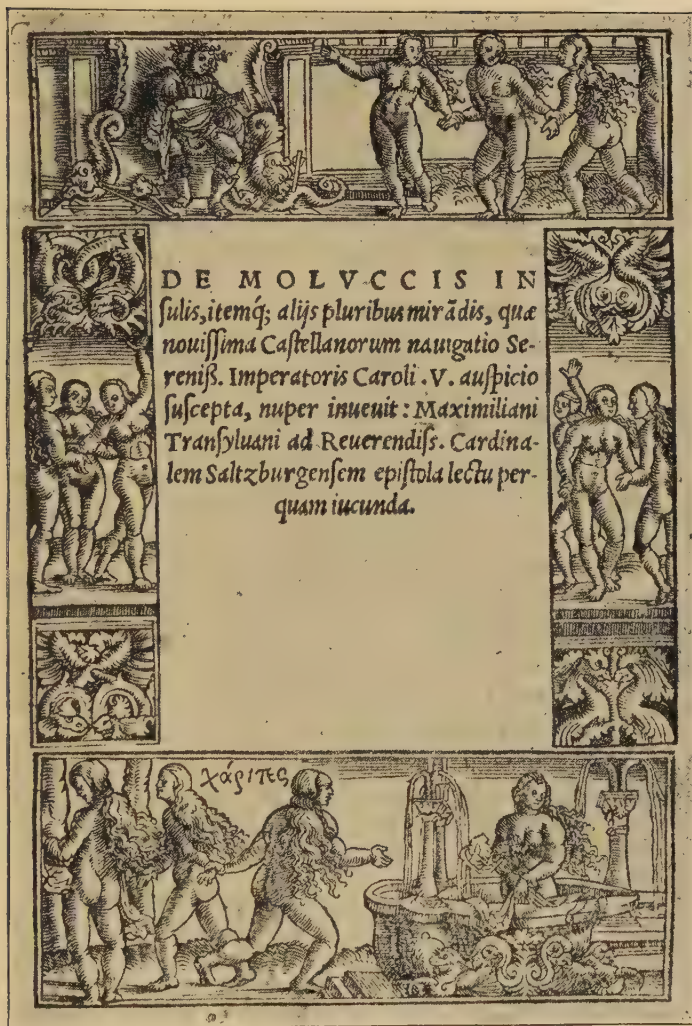 DE MOLVCCIS IN
ſulis, itemq́; alijs pluribus mirādis, quæ
nouiſſima Caſtellanorum nauigatio Se-
reniß. Imperatoris Caroli .V. auſpicio
ſuſcepta, nuper inuenit: Maximiliani
Tranſyluani ad Reuerendiſs. Cardina-
lem Saltzburgenſem epiſtola lectu per-
quam iucunda.
χάριτες